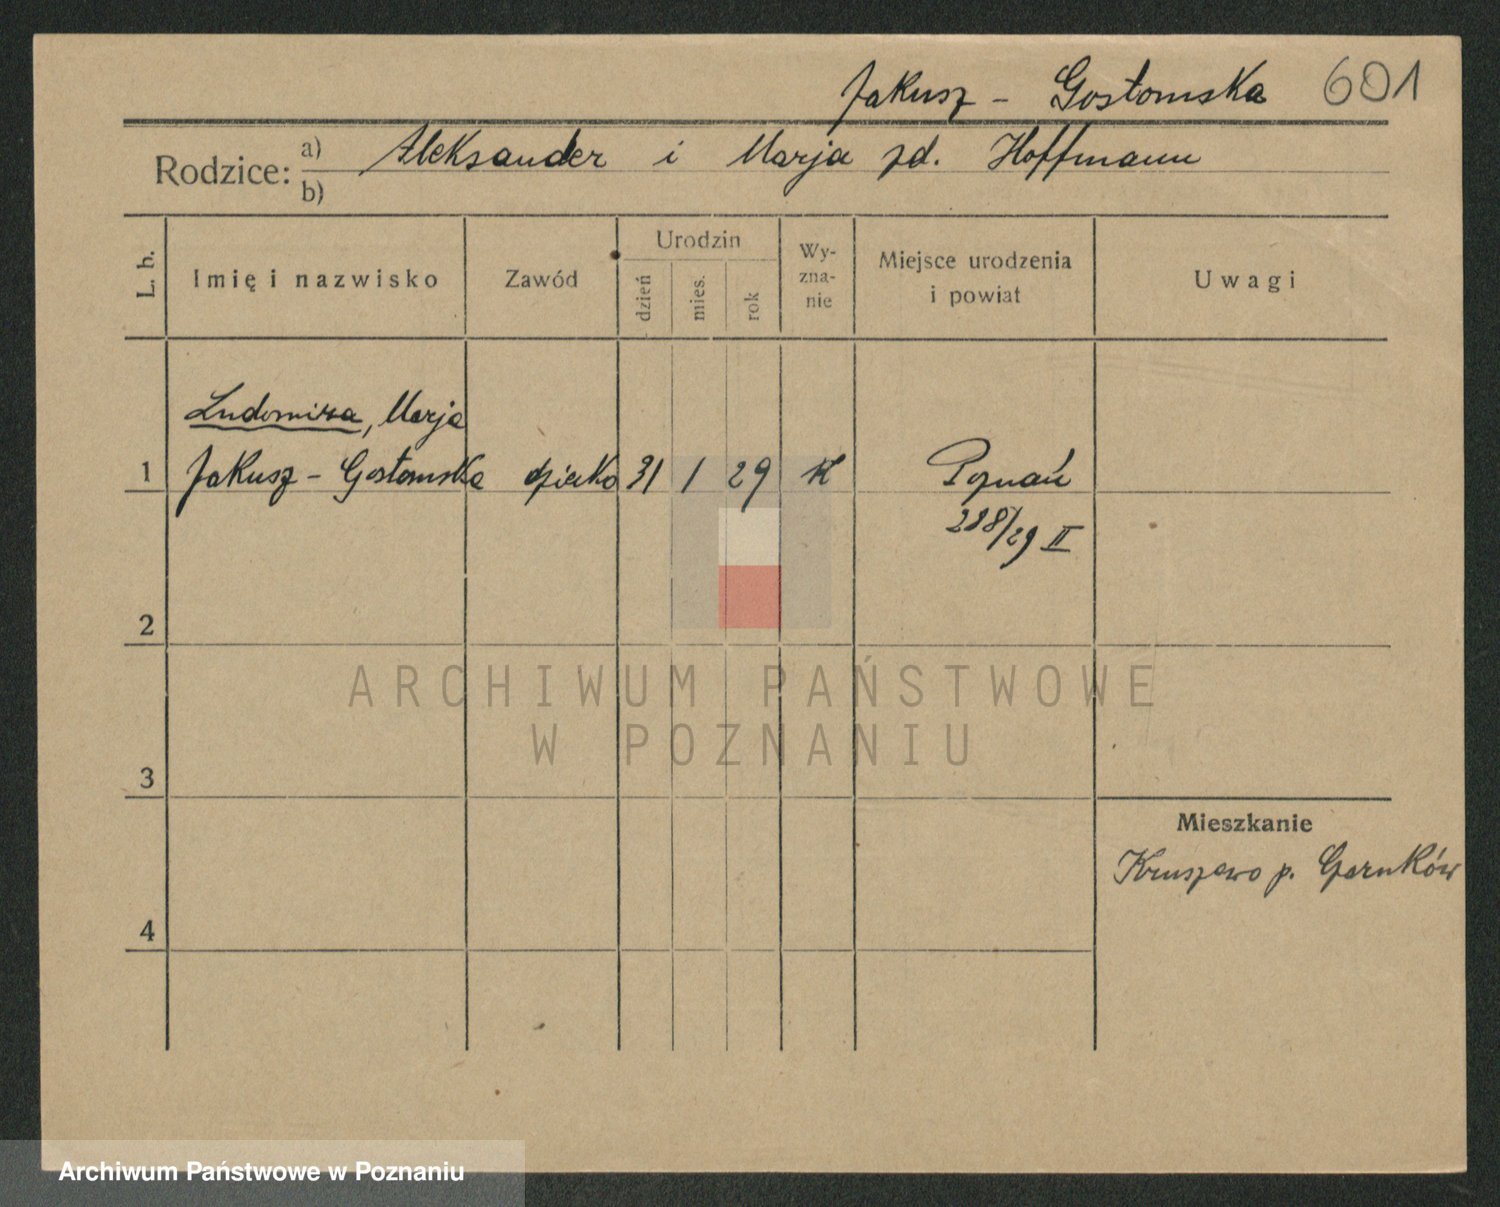 Jakusz - Gostomska 601
Rodzice: a) Aleksander i Marja zd. Hoffmann
b)
L. b.
Imię i nazwisko
Zawód
Urodzin
dzień
mies.
rok
Wy-
zna-
nie
Miejsce urodzenia
i powiat
Uwagi
Ludomira, Marja
1 Jakusz - Gostomska dziecko 31 1 29 K Poznań
288/29 II
2
ARCHIWUM PAŃSTWOWE
W POZNANIU
3
Mieszkanie
Kruszewo p. Czarnków
4
Archiwum Państwowe w Poznaniu